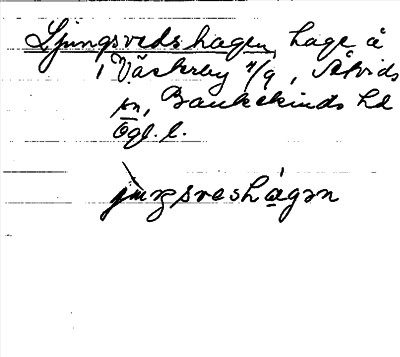 Ljungsvedshagen, hage å
i Västerby 4/9, Åtvids
sn, Bankekinds hd
Ögl. l.
juŋsveshàgən